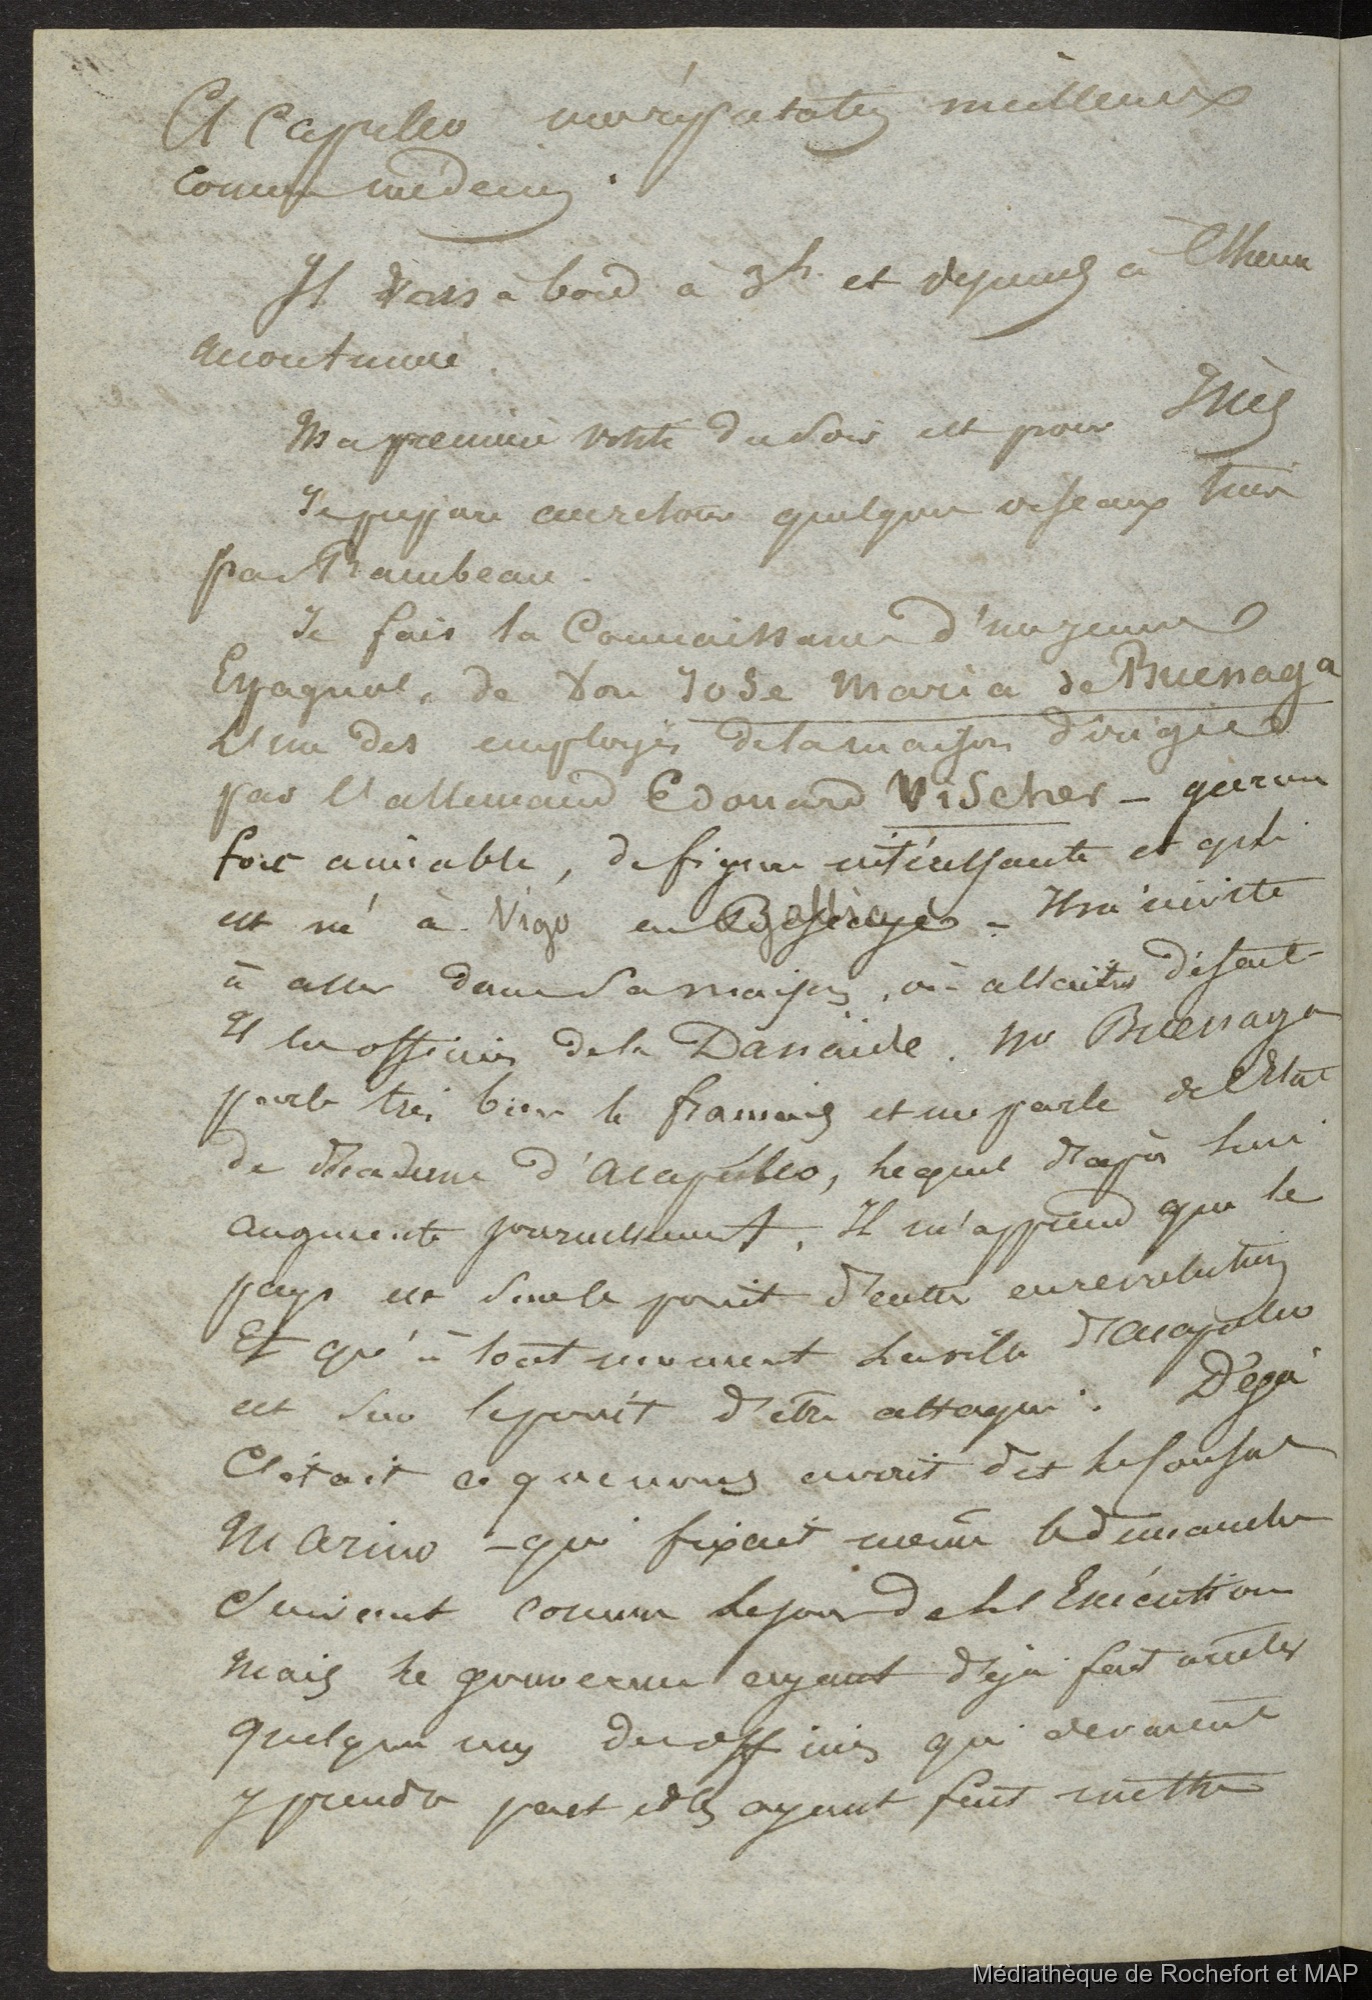 Acapulco une réputation meilleure
comme médecin.
Je vais à bord à 3h et déjeune à l'heure
accoutumée.
Ma première visite du soir est pour Inès
Je prépare au retour quelques oiseaux tués
par Rambeau.
Je fais la Connaissance d'un jeune
Espagnol, de Don José Maria de Buenaga
l'un des employés de la maison dirigée
par l'allemand Edouard Vischer – garçon
fort aimable, de figure intéressante et qui
est né à Vigo en – Il m'invite
à aller dans sa maison, où
Et les officiers de la Danaïde. Mr Buenaga
parle très bien le français et me parle de l'Etat
de d'Acapulco, lequel d'après lui
augmente journellement. Il m'apprend que le
pays est sur le point d'entrer en révolution
Et qu'à tout moment la ville d'acapulco
est sur le point d'être attaquée. Déjà
C'était ce que nous avait dit le Consul
Marino – qui fixait même le dimanche
Suivant comme le jour de l'Exécution
Mais le gouverneur ayant déjà fait arrêter
quelques uns des officiers qui devaient
y prendre part et les ayant fait mettre
Médiathèque de Rochefort et MAP